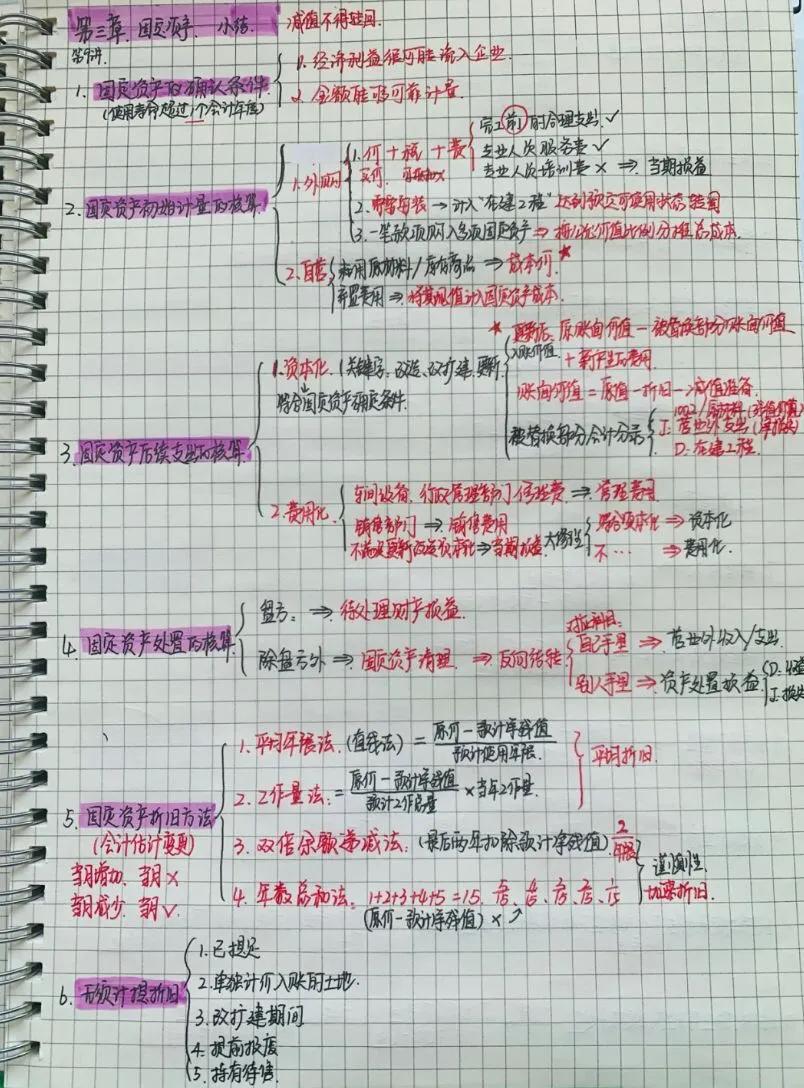 第三章 固定资产 小结 减值不得转回.
第9讲.
1. 固定资产的确认条件
(使用寿命超过1个会计年度)
1. 经济利益很可能流入企业.
2. 金额能够可靠计量.
2. 固定资产初始计量的核算.
1.外购
1. 价+税+费
买价.
完工前的合理支出. ✓
专业人员服务费 ✓
专业人员培训费 × ⇒ 当期损益
2. 需要安装 → 计入“在建工程” 达到预定可使用状态 转固
3. 一笔款项购入多项固定资产 ⇒ 按公允价值比例分摊总成本.
2. 自营
耗用原材料/库存商品 ⇒ 成本价. ★
弃置费用 ⇒ 将其现值计入固定资产成本.
3. 固定资产后续支出的核算.
1. 资本化. (关键字: 改造、改扩建、更新
符合固定资产确定条件.
★ 更新后 原账面价值 - 被替换部分账面价值
入账价值 + 新产生的费用.
账面价值 = 原值 - 折旧 - 减值准备
被替换部分会计分录
1002/原材料 (残值价值)
J: 营业外支出 (净损失)
D: 在建工程.
2. 费用化.
车间设备、行政管理部门修理费 ⇒ 管理费用
销售部门 ⇒ 销售费用
不满足更新改造资本化 ⇒ 当期损益.
大修理
符合资本化 ⇒ 资本化
不… ⇒ 费用化.
4. 固定资产处置的核算
盘亏: ⇒ 待处理财产损益.
除盘亏外 ⇒ 固定资产清理 ⇒ 反向结转
对应科目:
自己手里 ⇒ 营业外收入/支出.
别人手里 ⇒ 资产处置损益
D: 收益
J: 损失
5. 固定资产折旧方法
(会计估计变更)
当月增加、当月 ×
当月减少、当月 ✓.
1. 平均年限法. (直线法) = 原价-预计净残值 / 预计使用年限
2. 工作量法: = 原价-预计净残值 / 预计工作总量 × 当年工作量.
平均折旧.
3. 双倍余额递减法: (最后两年扣除预计净残值) 2/年限
4. 年数总和法: 1+2+3+4+5 = 15. 5/15、4/15、3/15、2/15、1/15
(原价-预计净残值) × ↗
谨慎性.
加速折旧.
6. 无须计提折旧
1. 已提足
2. 单独计价入账的土地.
3. 改扩建期间
4. 提前报废
5. 持有待售.